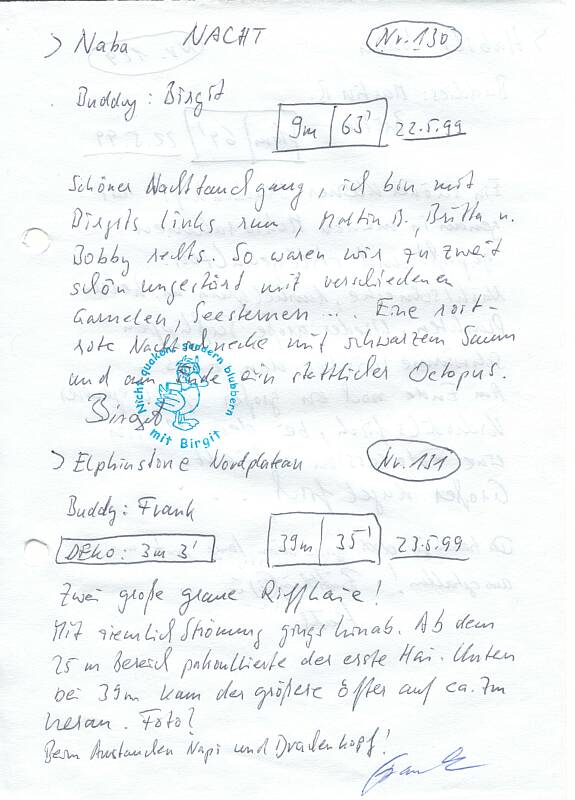 > Naba NACHT Nr. 130
Buddy: Birgit
9m 63' 22.5.99
Schöner Nachttauchgang, ich bin mit
Birgit links rum, Martin B., Britta u.
Bobby rechts. So waren wir zu zweit
schön ungestört mit verschiedenen
Garnelen, Seesternen ... Eine rost-
rote Nacktschnecke mit schwarzem Saum
und am Ende ein stattlicher Octopus.
Birgit
Nicht quaken, sondern blubbern
mit Birgit
> Elphinstone Nordplateau Nr. 131
Buddy: Frank
DEKO: 3m 3' 39m 35' 23.5.99
Zwei große graue Riffhaie!
Mit ziemlich Strömung gings hinab. Ab dem
25 m Bereich patrouillierte der erste Hai. Unten
bei 39m kam der größere öfter auf ca. 7m
heran. Foto?
Beim Austauchen Napi und Drachenkopf!
Frank